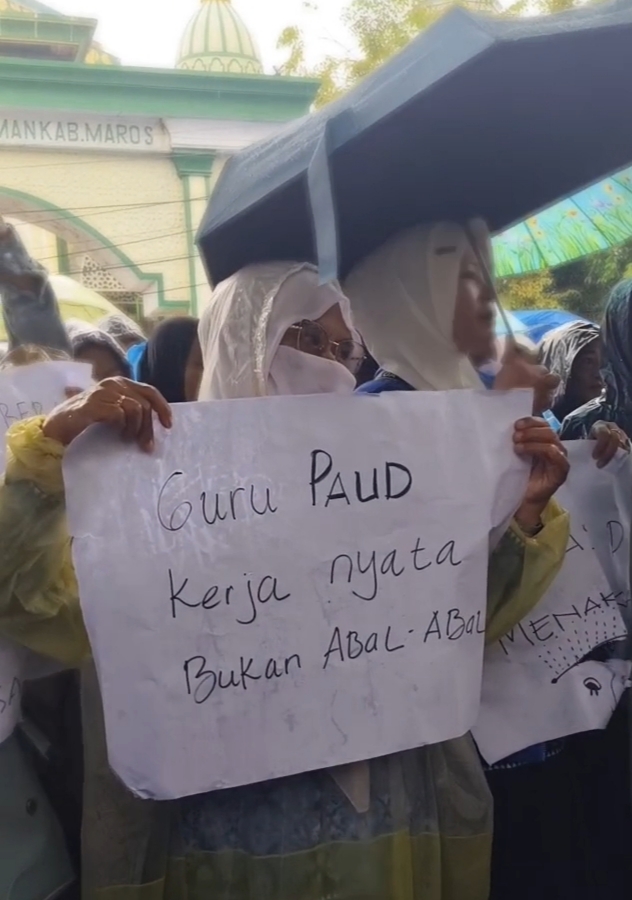 MAN KAB. MAROS
Guru PAUD
Kerja nyata
Bukan ABaL-ABaL
MENAK